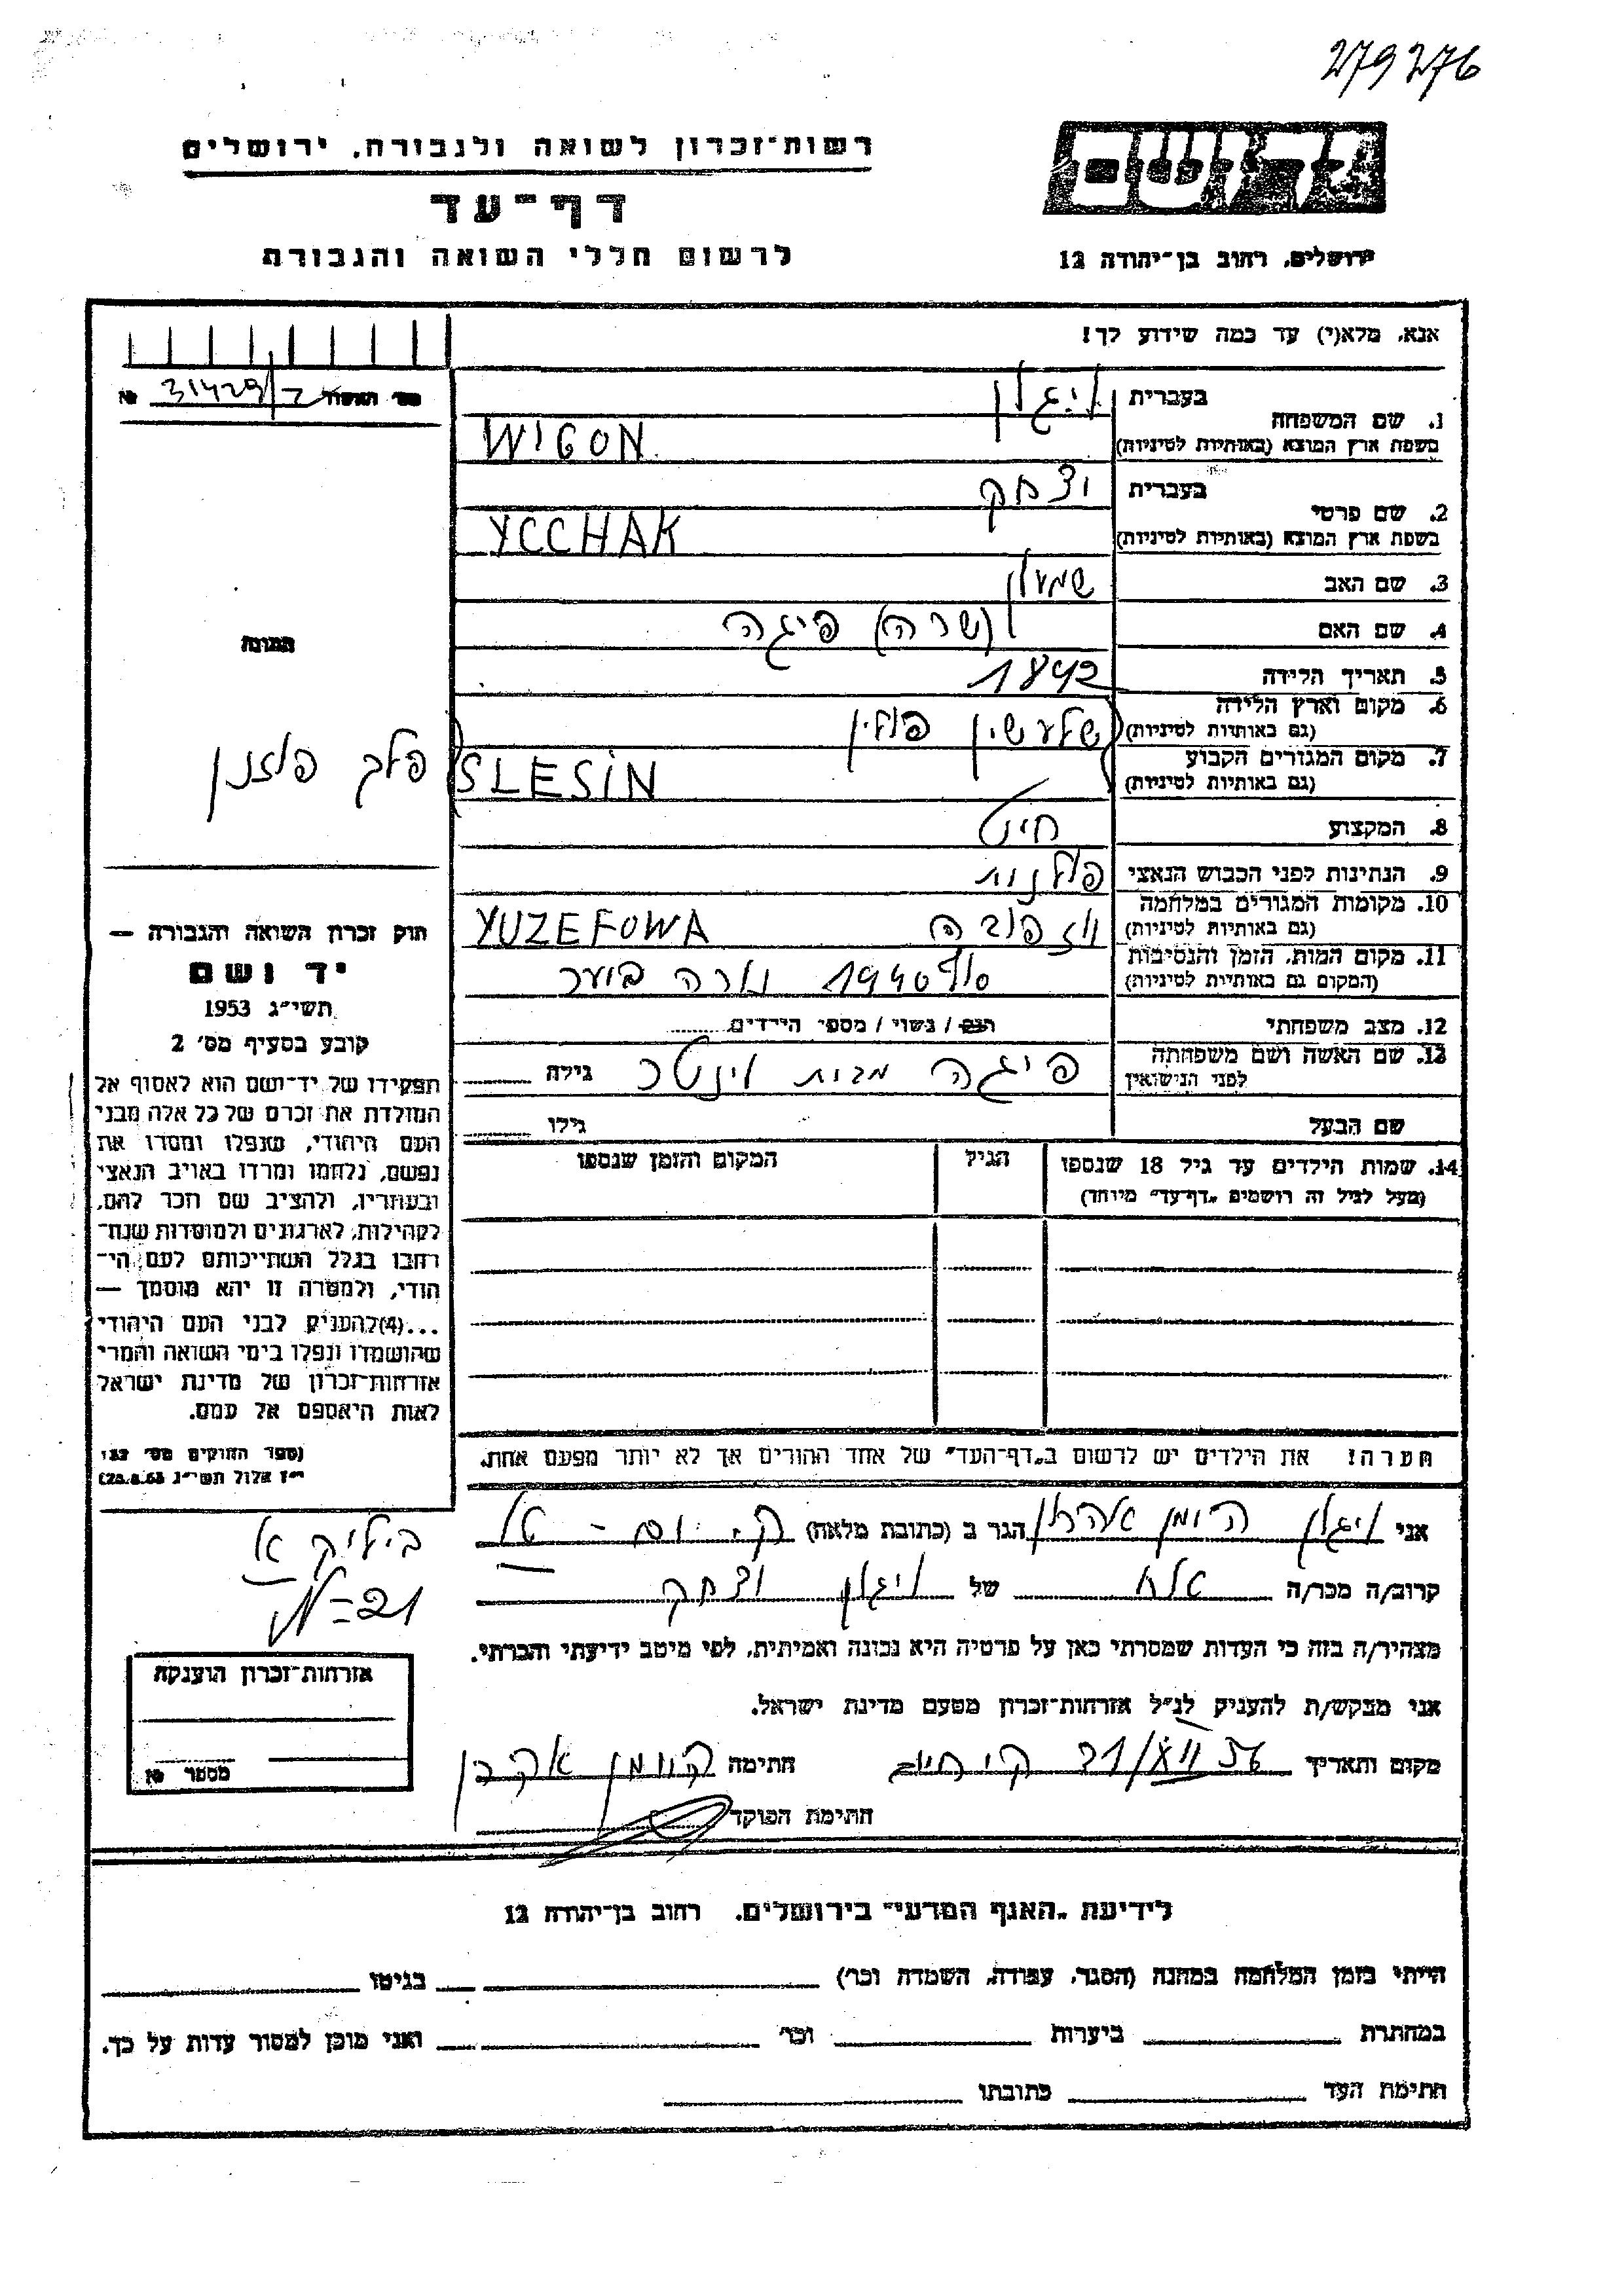 279276
רשות־זכרון לשואה ולגבורה, ירושלים
דף־עד
לרשום חללי השואה והגבורה
ירושלים, רחוב בן־יהודה 12
אנא, מלא(י) עד כמה שידוע לך!
1. שם המשפחה בעברית ויגון
בשפת ארץ המוצא (באותיות לטיניות) WIGON
2. שם פרטי בעברית יצחק
בשפת ארץ המוצא (באותיות לטיניות) YCCHAK
3. שם האב שמעון
4. שם האם (שרה) פיגה
5. תאריך הלידה
6. מקום וארץ הלידה (גם באותיות לטיניות) שלעשין פולין
7. מקום המגורים הקבוע (גם באותיות לטיניות) SLESIN פלך פוזנן
8. המקצוע חיט
9. הנתינות לפני הכבוש הנאצי פולנית
10. מקומות המגורים במלחמה (גם באותיות לטיניות) YUZEFOWA
11. מקום המות, הזמן והנסיבות (המקום גם באותיות לטיניות) סוף 1940 נורה ביער
12. מצב משפחתי רווק / נשוי / מספר הילדים
13. שם האשה ושם משפחתה לפני הנישואין פיגה מבית וינטר גילה
שם הבעל גילו
14. שמות הילדים עד גיל 18 שנספו הגיל המקום והזמן שנספו
(מעל לגיל זה רושמים „דף־עד” מיוחד)
הערה! את הילדים יש לרשום ב„דף־העד” של אחד ההורים אך לא יותר מפעם אחת.
מס' האשור 31429/ No
תמונה
חוק זכרון השואה והגבורה —
יד ושם
תשי״ג 1953
קובע בסעיף מס׳ 2
תפקידו של יד־ושם הוא לאסוף אל
המולדת את זכרם של כל אלה מבני
העם היהודי, שנפלו ומסרו את
נפשם, נלחמו ומרדו באויב הנאצי
ובעוזריו, ולהציב שם וזכר להם,
לקהילות, לארגונים ולמוסדות שנח־
רבו בגלל השתייכותם לעם הי־
הודי, ולמטרה זו יהא מוסמך —
...(4)להעניק לבני העם היהודי
שהושמדו ונפלו בימי השואה והמרי
אזרחות־זכרון של מדינת ישראל
לאות היאספם אל עמם.
(ספר החוקים מס׳ 132
י״ז אלול תשי״ג 28.8.53)
אני ויגון הימן אהרון הגר ב (כתובת מלאה)
קרוב/ה מכר/ה אח של ויגון יצחק
מצהיר/ה בזה כי העדות שמסרתי כאן על פרטיה היא נכונה ואמיתית, לפי מיטב ידיעתי והכרתי.
אני מבקש/ת להעניק לנ״ל אזרחות־זכרון מטעם מדינת ישראל.
מקום ותאריך חתימה
חתימת הפוקד
אזרחות־זכרון הוענקה
מספר No
לידיעת „האגף המדעי” בירושלים, רחוב בן־יהודה 12
הייתי בזמן המלחמה במחנה (הסגר, עבודה, השמדה וכו׳) בגיטו
במחתרת ביערות וכו׳ ואני מוכן למסור עדות על כך.
חתימת העד כתובתו